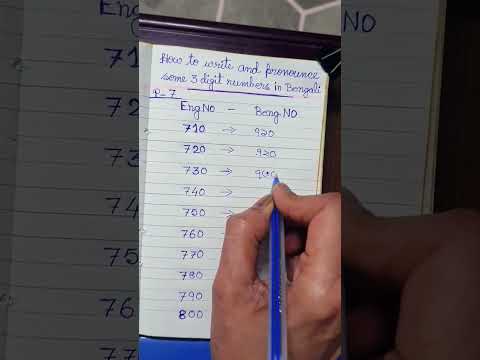 How to write and pronounce
some 3 digit numbers in Bengali
P-7
Eng NO - Beng NO
710 → ৭১০
720 → ৭২০
730 → ৭৩০
740 →
750 →
760
770
780
790
800